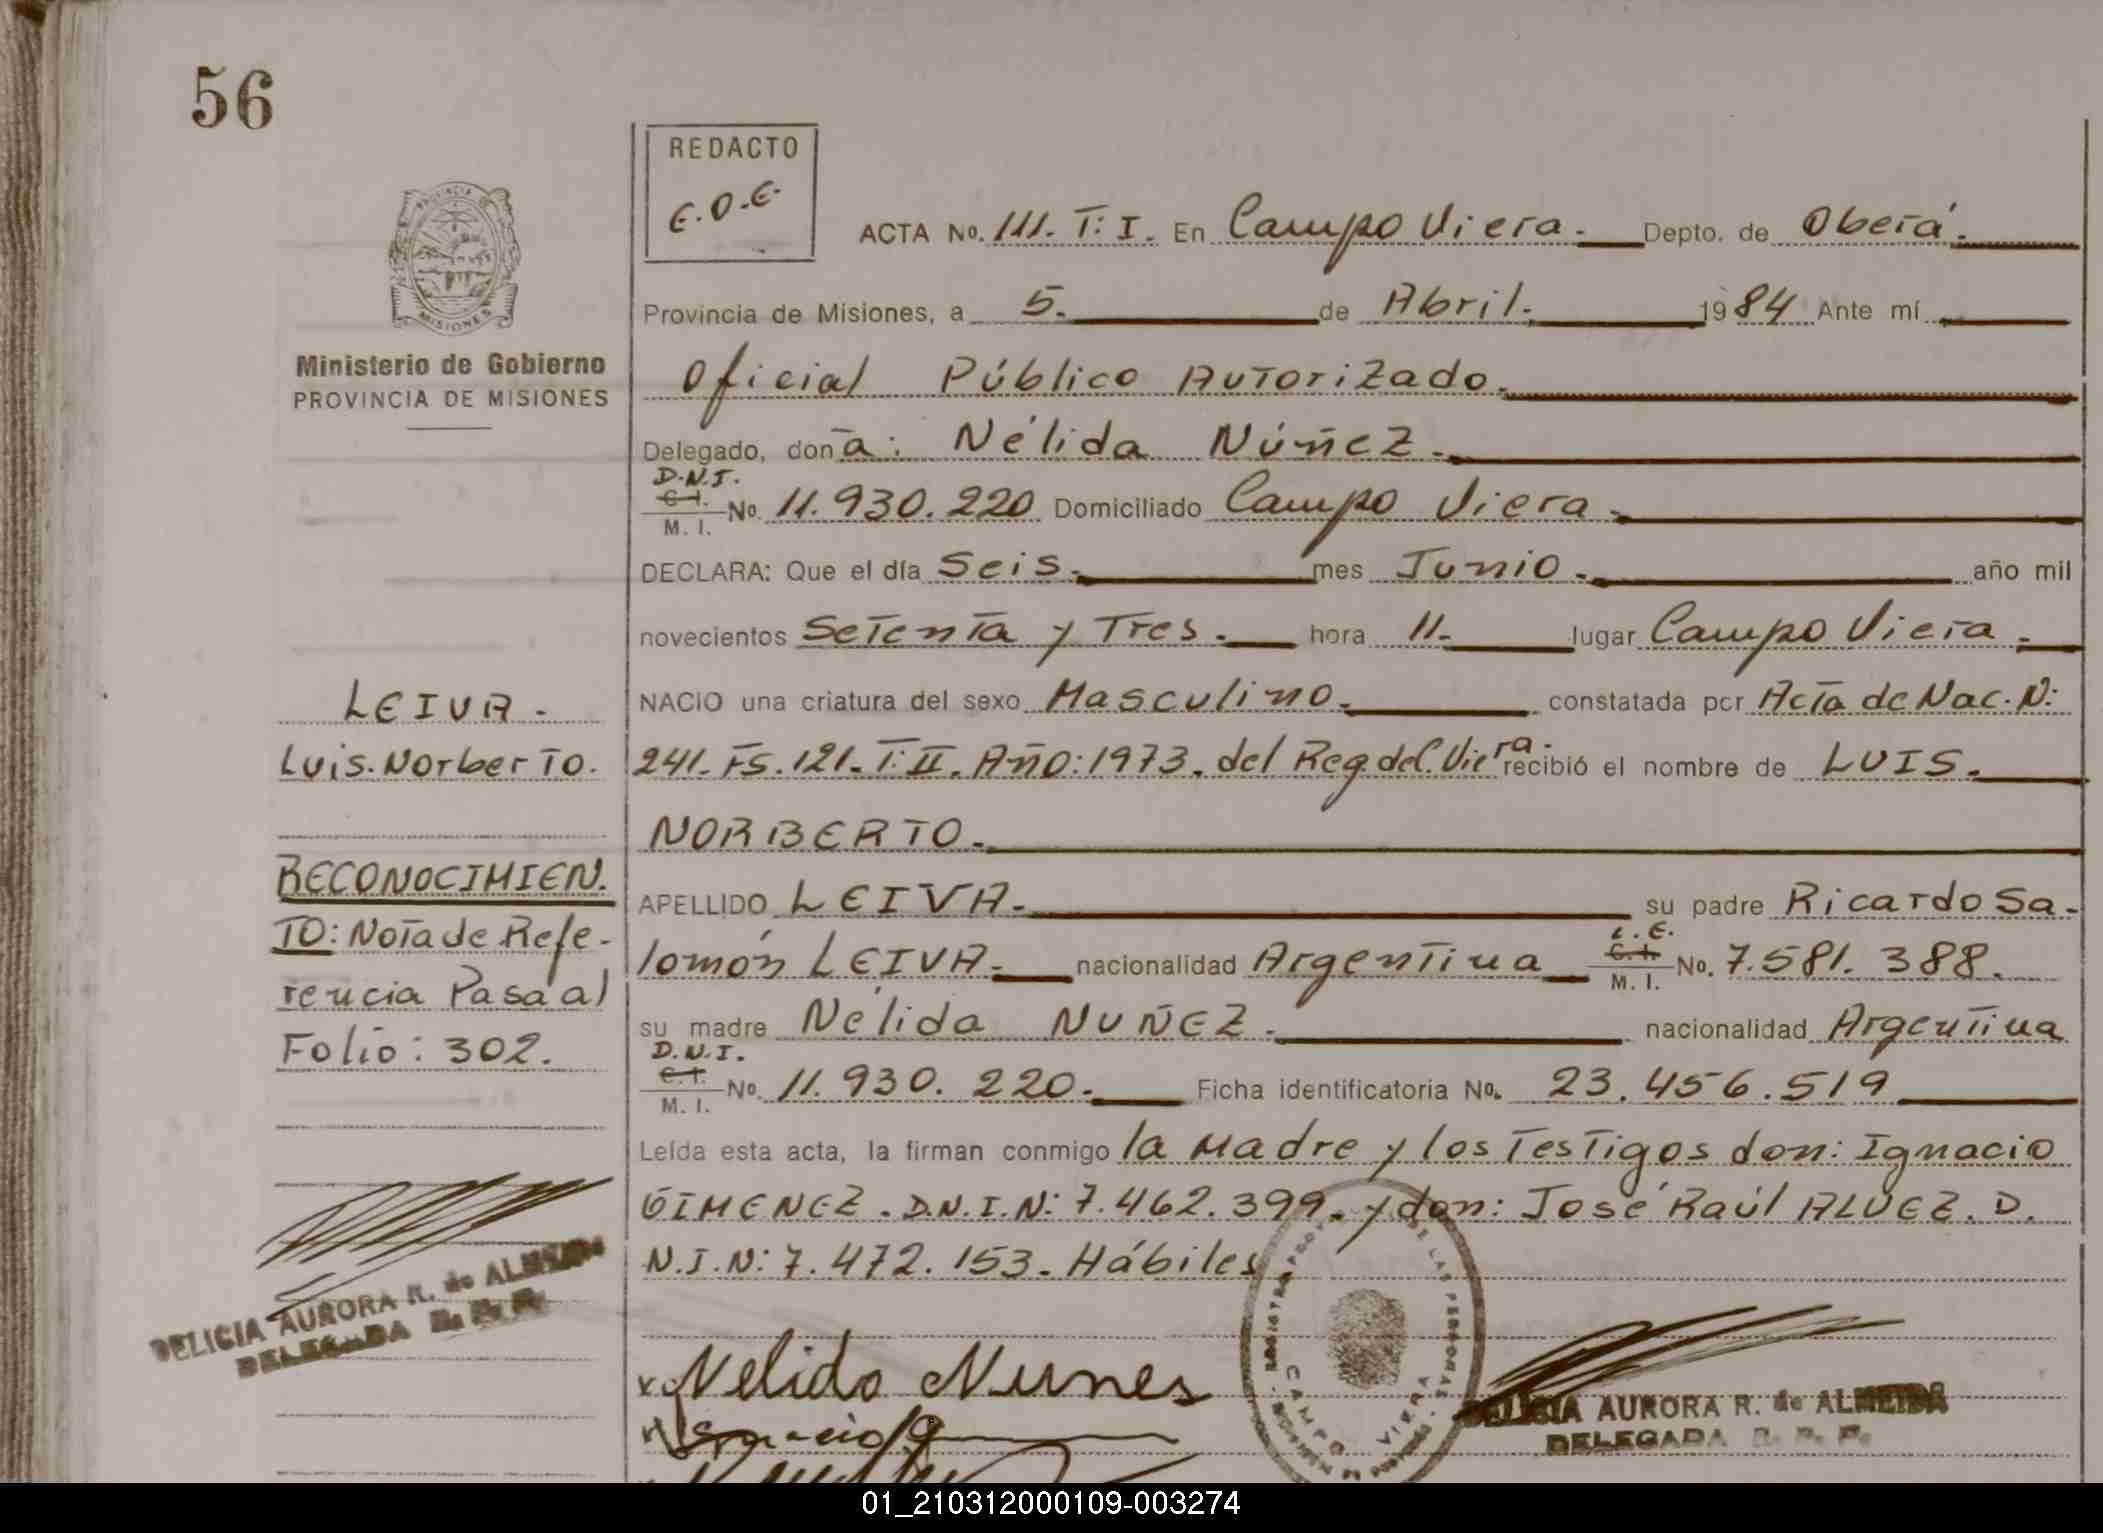 56
REDACTO
E.O.E.
ACTA No. 111. T: I. En Campo Viera. Depto. de Oberá.
Provincia de Misiones, a 5. de Abril. 1984 Ante mí
Oficial Público Autorizado.
Ministerio de Gobierno
PROVINCIA DE MISIONES
Delegado, doña: Nélida Núñez.
D.N.I.
C.I.
M. I. No. 11.930.220 Domiciliado Campo Viera
DECLARA: Que el día Seis. mes Junio. año mil
novecientos Setenta y Tres. hora 11. lugar Campo Viera.
NACIO una criatura del sexo Masculino. constatada por Acta de Nac. N:
241. Fs. 121. T: II. Año: 1973. del Reg. del C. Viera. recibió el nombre de LUIS.
NORBERTO.
APELLIDO LEIVA. su padre Ricardo Sa-
L.E.
C.I.
lomón LEIVA. nacionalidad Argentina M. I. No. 7.581.388.
su madre Nélida NUÑEZ. nacionalidad Argentina
D.N.I.
C.I.
M. I. No. 11.930.220. Ficha identificatoria No. 23.456.519
Leída esta acta, la firman conmigo la Madre y los Testigos don: Ignacio
GIMENEZ. D.N.I.N: 7.462.399. y don: José Raúl ALVEZ. D.
N.I.N: 7.472.153. Hábiles
LEIVA.
Luis Norberto.
RECONOCIMIEN.
TO: Nota de Refe-
rencia Pasa al
Folio: 302.
DELICIA AURORA R. de ALMEIDA
DELEGADA R. P. P.
Nelida Nunes
Ignacio G
CAMPO VIERA
DELICIA AURORA R. de ALMEIDA
DELEGADA R. P. P.
01_210312000109-003274